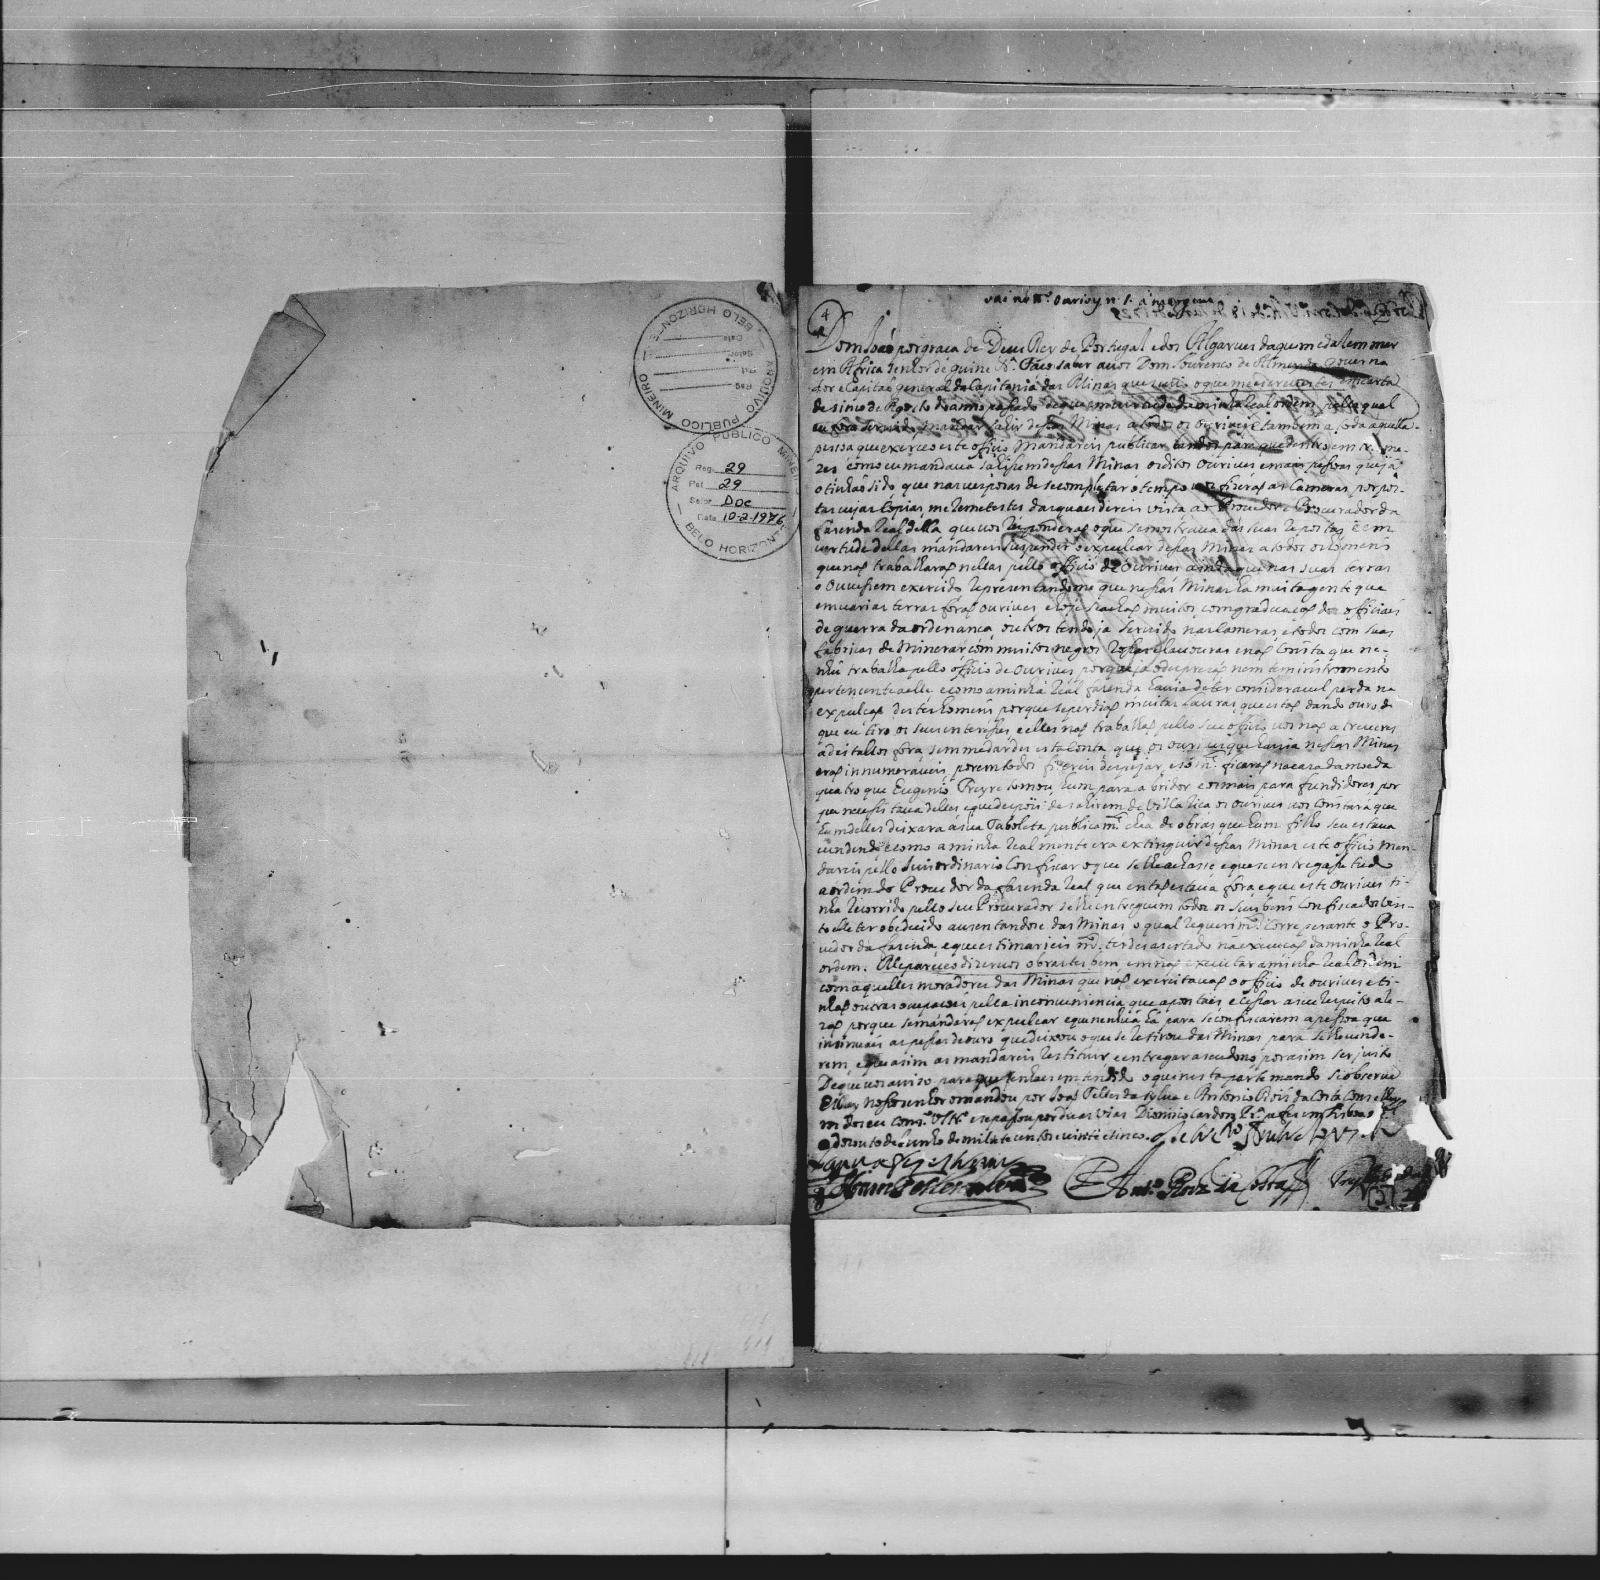 ARQUIVO PUBLICO MINEIRO
— BELO HORIZONTE —
Reg.
Pst.
Setor
Data
ARQUIVO PUBLICO MINEIRO
Reg. 29
Pst. 29
Setor Doc
Data 10-2-1976
— BELO HORIZONTE —
4
Dom Joaõ por graca de Deus Rey de Portugal e dos Algarves daquem e dalem mar
em Africa senhor de Guine &ª. Faço saber avos Dom Lourenco de Almeyda Governa
dor e Capitaõ general da Capitania das Minas que se vio o que me escrevestes em carta
de sinco de Agosto do anno passado de que em virtude da minha Real ordem pella qual
eu fora servido mandar sahir dessas Minas a todos os ourives e tambem a toda aquella
pessoa que exerceo este officio mandareis publicar bandos para que dentro em tres me-
zes como eu mandava sahissem dessas Minas os ditos ourives e mais pessoas que já
o tinhaõ sido, que nas vesporas de se completar o tempo vos fizeraõ as Cameras propos-
tas cujas Copias me remetestes das quaes dereis vista ao Provedor e Procurador da
fazenda Real della que vos responderaõ o que se mostrava das suas repostas e em
vertude dellas mandareis suspender o expulçar dessas Minas a todos os homens
que naõ trabalharaõ nellas pello officio de Ourives ainda que nas suas terras
o ouvessem exercido representandome que nessas Minas ha muita gente que
em varias terras foraõ ourives e hoje se achaõ muitos com graduaçoẽs de officiaes
de guerra da ordenança, outros tendo ja servido nas Cameras e todos com suas
fabricas de minerar com muitos negros rossas e lavouras e naõ consta que ne-
nhũ trabalha pello officio de Ourives porque ja o despresaõ nem tem instromento
pertencente a elle, e como a minha Real fazenda havia de ter consideravel perda na
expulçaõ destes homens porque se perdiaõ muitas lavras que estaõ dando ouro de
que eu tiro os seus interesses e elles naõ trabalhaõ pello seu officio vos naõ atreveres
a deitallos fora sem me dardes esta conta que os ourives que havia nessas Minas
eraõ innumeraveis, porem todos fizereis despejar, e só m.ᵉ ficaraõ na caza da moeda
quatro que Eugenio Freyre tomou hum para abridor e os mais para fundidores por
que necessitava delles e que depois de sahirem de Villa Rica os ourives vos constara que
hum delles deixara a sua Taboleta publicamᵗᵉ chea de obras que hum filho seu estava
vendendo e como a minha Real mente era extinguir dessas Minas este officio man-
dareis pello Juis ordinario confiscar o que se lhe achasse e que se entregasse tudo
a ordem do Provedor da fazenda Real que entaõ estava fora e que este ourives ti-
nha recorrido pello seu Procurador se lhe entreguem todos os seus bens confiscados vis-
to elle ter obedecido auzentandose das Minas o qual requerimᵗᵒ corre perante o Pro-
vedor da fazenda e que estimarieis mᵗᵒ. ter desasertado na execuçaõ da minha Real
ordem. Me pareceo dizervos obrastes bem em naõ executar a minha Real ordem
com aquelles moradores das Minas que naõ exercitavaõ o officio de ourives e ti-
nhaõ outras ocupaçoẽs pella inconveniencia que apontaes e cessar a seu respeito a re-
zaõ porque se mandaraõ expulçar e que nenhuã há para se confiscarem a pessoa que
insinuais as pessas de ouro que deixou o que se retirou das Minas para se lhe vende-
rem, e que asim as mandareis restituir e entregar a seu dono por asim ser justo
De que vos aviso para que tenhaes entendido o que nesta parte mando se observe
El Rey nosso senhor o mandou por Joaõ Telles da sylva e Antonio Roĩz da Costa Conselhey
ros do seu Consᵒ. Ultrᵒ. e se passou por duas vias Dionizio Cardozo Prᵃ. a fez em Lisboa
a dezouto de Junho de mil e sete centos e vinte e sinco.
Antᵒ Roiz da Costa